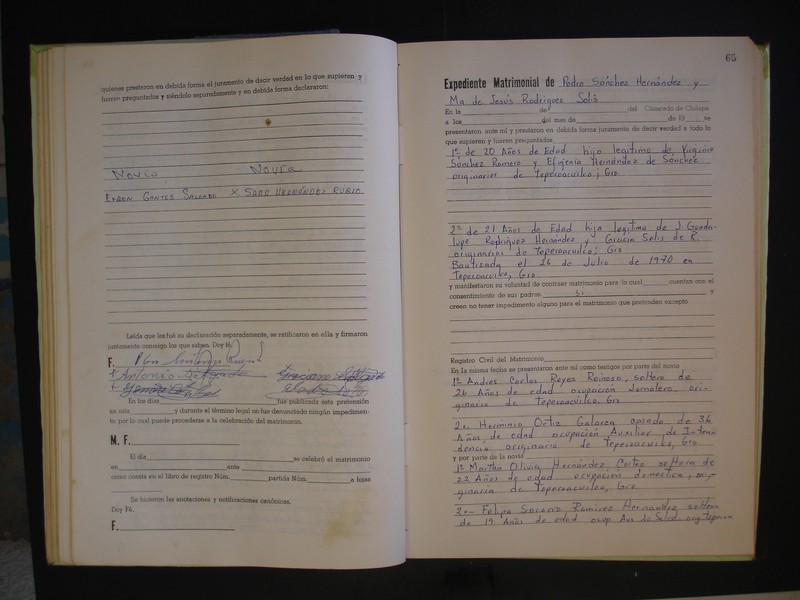 quienes prestaron en debida forma el juramento de decir verdad en lo que supieren y
fueren preguntados y siéndolo separadamente y en debida forma declararon:
Novio Novia
Efren Gontes Salgado x Sara Hernández Rubio
Leída que les fué su declaración separadamente, se ratificaron en ella y firmaron
juntamente conmigo los que saben. Doy Fé.
F.
Antonio
Graciano
En los días fue publicada esta pretensión
en esta y durante el término legal no fue denunciado ningún impedimen-
to por lo cual puede procederse a la celebración del matrimonio.
M. F.
El día se celebró el matrimonio
en ante
como consta en el libro de registro Núm. partida Núm. a fojas
Se hicieron las anotaciones y notificaciones canónicas.
Doy Fé.
F.
65
Expediente Matrimonial de Pedro Sánchez Hernández y
Ma de Jesús Rodríguez Solis
En la de del Obispado de Chilapa
a los del mes de de 19 se
presentaron ante mí y prestaron en debida forma juramento de decir verdad a todo lo
que supieren y fueren preguntados
1º de 20 Años de Edad hijo legítimo de Virginio
Sánchez Romero y Efigenia Hernández de Sánchez
originarios de Tepecoacuilco; Gro
2º de 21 Años de Edad hija legítima de J. Guada-
lupe Rodríguez Hernández y Gracia Solis de R.
originarios de Tepecoacuilco; Gro
Bautizada el 26 de Julio de 1970 en
Tepecoacuilco, Gro
y manifestaron su voluntad de contraer matrimonio para lo cual cuentan con el
consentimiento de sus padres si y
creen no tener impedimento alguno para el matrimonio que pretenden excepto
Registro Civil del Matrimonio
En la misma fecha se presentaron ante mí como testigos por parte del novio
1º Andres Carlos Reyes Reinoso, soltero de
26 Años de edad ocupación Jornalero, ori-
ginario de Tepecoacuilco. Gro
2.- Herminio Ortiz Galarza casado de 36
Años de edad ocupación Auxiliar de Inten
dencia originario de Tepecoacuilco, Gro
y por parte de la novia
1º Martha Olivia Hernández Cortez soltera de
22 Años de edad ocupación domestica, ori-
ginaria de Tepecoacuilco, Gro
2.- Felipa Socorro Ramirez Hernandez soltera
de 19 Años de edad ocup. Aux de Salud orig Tepecoa